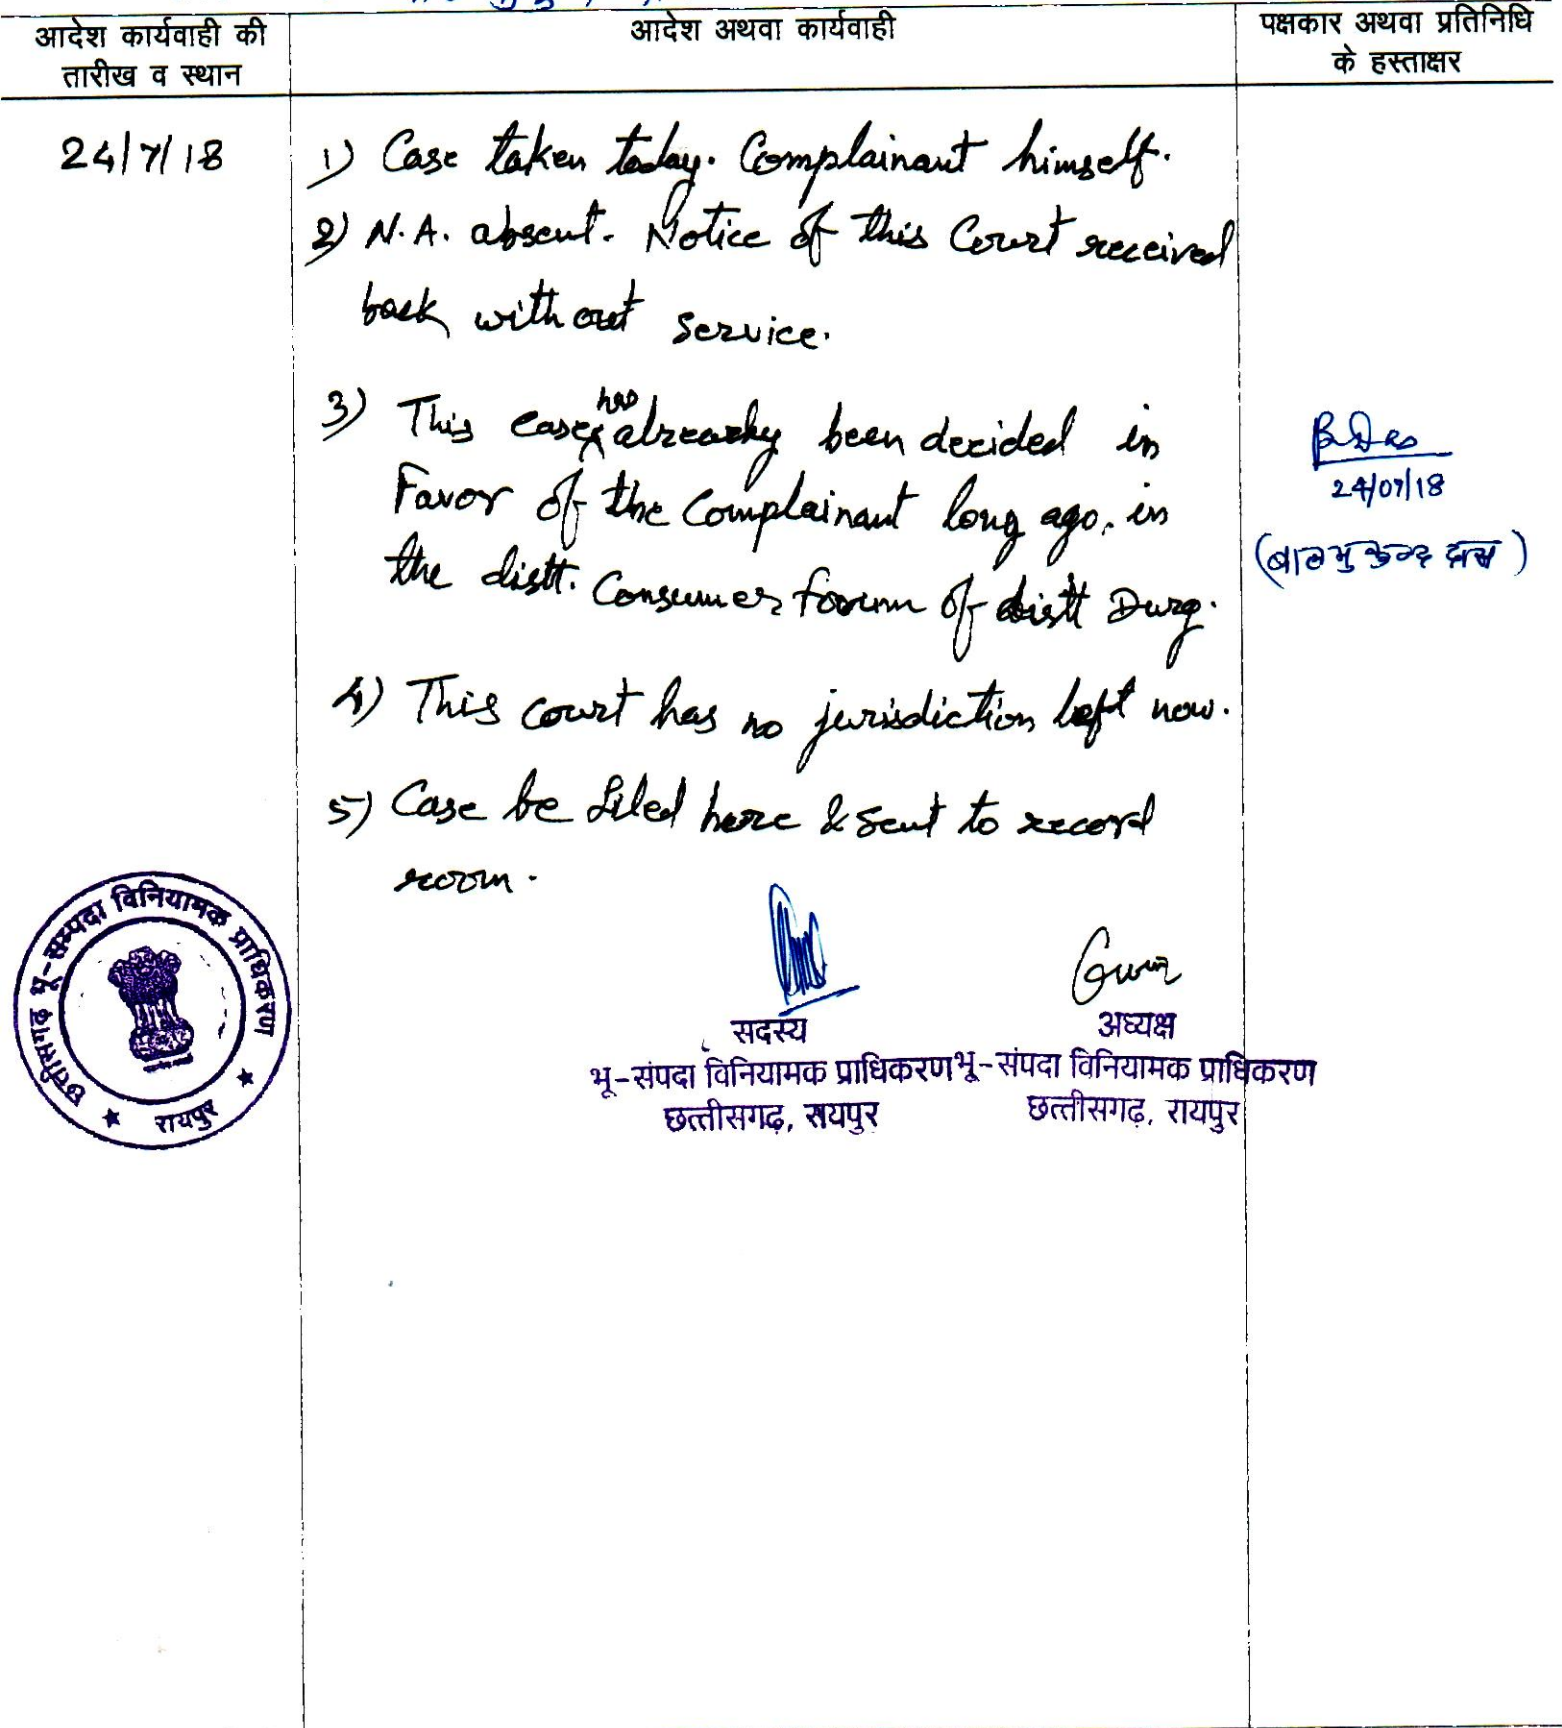 आदेश कार्यवाही की
तारीख व स्थान
आदेश अथवा कार्यवाही
पक्षकार अथवा प्रतिनिधि
के हस्ताक्षर
24/7/18
1) Case taken today. Complainant himself.
2) N.A. absent. Notice of this Court received
back without service.
3) This case has already been decided in
Favor of the Complainant long ago. in
the distt. Consumer forum of distt Durg.
4) This court has no jurisdiction left now.
5) Case be filed here & sent to record
room.
24/07/18
(बालमुकुन्द दास)
छत्तीसगढ़ भू-सम्पदा विनियामक प्राधिकरण
रायपुर
सदस्य
भू-संपदा विनियामक प्राधिकरण
छत्तीसगढ़, रायपुर
अध्यक्ष
भू-संपदा विनियामक प्राधिकरण
छत्तीसगढ़, रायपुर